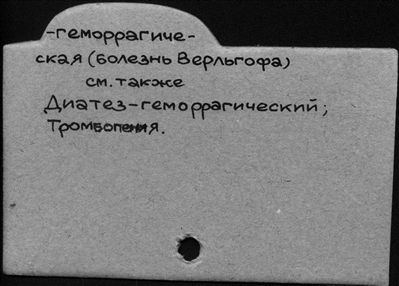 -геморрагиче-
ская (болезнь Верльгофа)
см. также
Диатез-геморрагический;
Тромбопения.